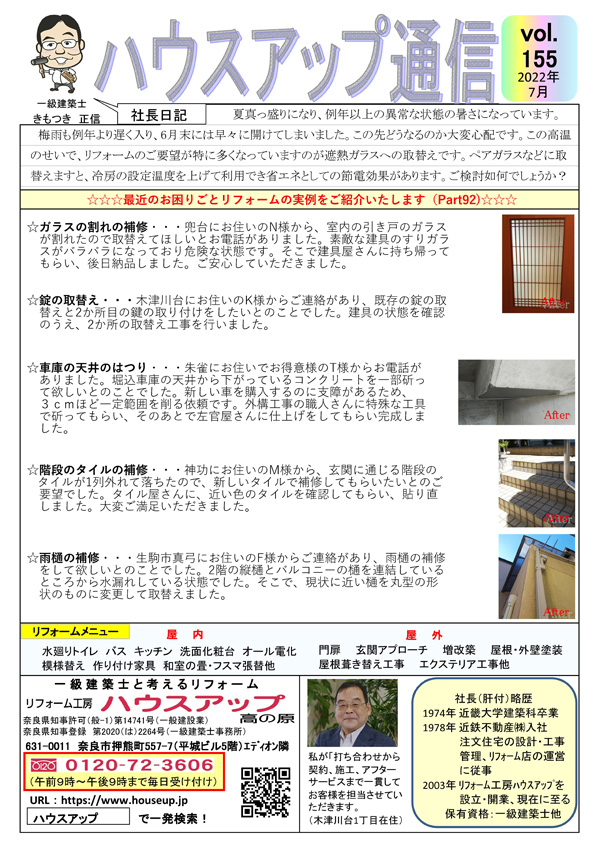 ハウスアップ通信
vol.
155
2022年
7月
一級建築士
きもつき 正信
社長日記
夏真っ盛りになり、例年以上の異常な状態の暑さになっています。
梅雨も例年より遅く入り、6月末には早々に開けてしまいました。この先どうなるのか大変心配です。この高温
のせいで、リフォームのご要望が特に多くなっていますのが遮熱ガラスへの取替えです。ペアガラスなどに取
替えますと、冷房の設定温度を上げて利用でき省エネとしての節電効果があります。ご検討如何でしょうか？
☆☆☆最近のお困りごとリフォームの実例をご紹介いたします（Part92）☆☆☆
☆ガラスの割れの補修・・・兜台にお住いのN様から、室内の引き戸のガラス
が割れたので取替えてほしいとお電話がありました。素敵な建具のすりガラ
スがバラバラになっており危険な状態です。そこで建具屋さんに持ち帰って
もらい、後日納品しました。ご安心していただきました。
After
☆錠の取替え・・・木津川台にお住いのK様からご連絡があり、既存の錠の取
替えと2か所目の鍵の取り付けをしたいとのことでした。建具の状態を確認
のうえ、2か所の取替え工事を行いました。
☆車庫の天井のはつり・・・朱雀にお住いでお得意様のT様からお電話が
ありました。堀込車庫の天井から下がっているコンクリートを一部斫っ
て欲しいとのことでした。新しい車を購入するのに支障があるため、
３ｃｍほど一定範囲を削る依頼です。外構工事の職人さんに特殊な工具
で斫ってもらい、そのあとで左官屋さんに仕上げをしてもらい完成しま
した。
After
☆階段のタイルの補修・・・神功にお住いのM様から、玄関に通じる階段の
タイルが1列外れて落ちたので、新しいタイルで補修してもらいたいとのご
要望でした。タイル屋さんに、近い色のタイルを確認してもらい、貼り直
しました。大変ご満足いただきました。
After
☆雨樋の補修・・・生駒市真弓にお住いのF様からご連絡があり、雨樋の補修
をして欲しいとのことでした。2階の縦樋とバルコニーの樋を連結している
ところから水漏れしている状態でした。そこで、現状に近い樋を丸型の形
状のものに変更して取替えました。
After
リフォームメニュー
屋　内
水廻りトイレ バス キッチン 洗面化粧台 オール電化
模様替え 作り付け家具 和室の畳・フスマ張替他
屋　外
門扉 玄関アプローチ 増改築 屋根・外壁塗装
屋根葺き替え工事 エクステリア工事他
一級建築士と考えるリフォーム
リフォーム工房 ハウスアップ
高の原
奈良県知事許可(般-1)第14741号(一般建設業)
奈良県知事登録 第2020(は)2264号(一級建築士事務所)
631-0011 奈良市押熊町557-7(平城ビル5階)エディオン隣
0120-72-3606
（午前9時～午後9時まで毎日受け付け）
URL：https://www.houseup.jp
ハウスアップ で一発検索！
私が「打ち合わせから
契約、施工、アフター
サービスまで一貫して
お客様を担当させてい
ただきます。
（木津川台1丁目在住）
社長（肝付）略歴
1974年 近畿大学建築科卒業
1978年 近鉄不動産㈱入社
注文住宅の設計・工事
管理、リフォーム店の運営
に従事
2003年 リフォーム工房ハウスアップを
設立・開業、現在に至る
保有資格：一級建築士他